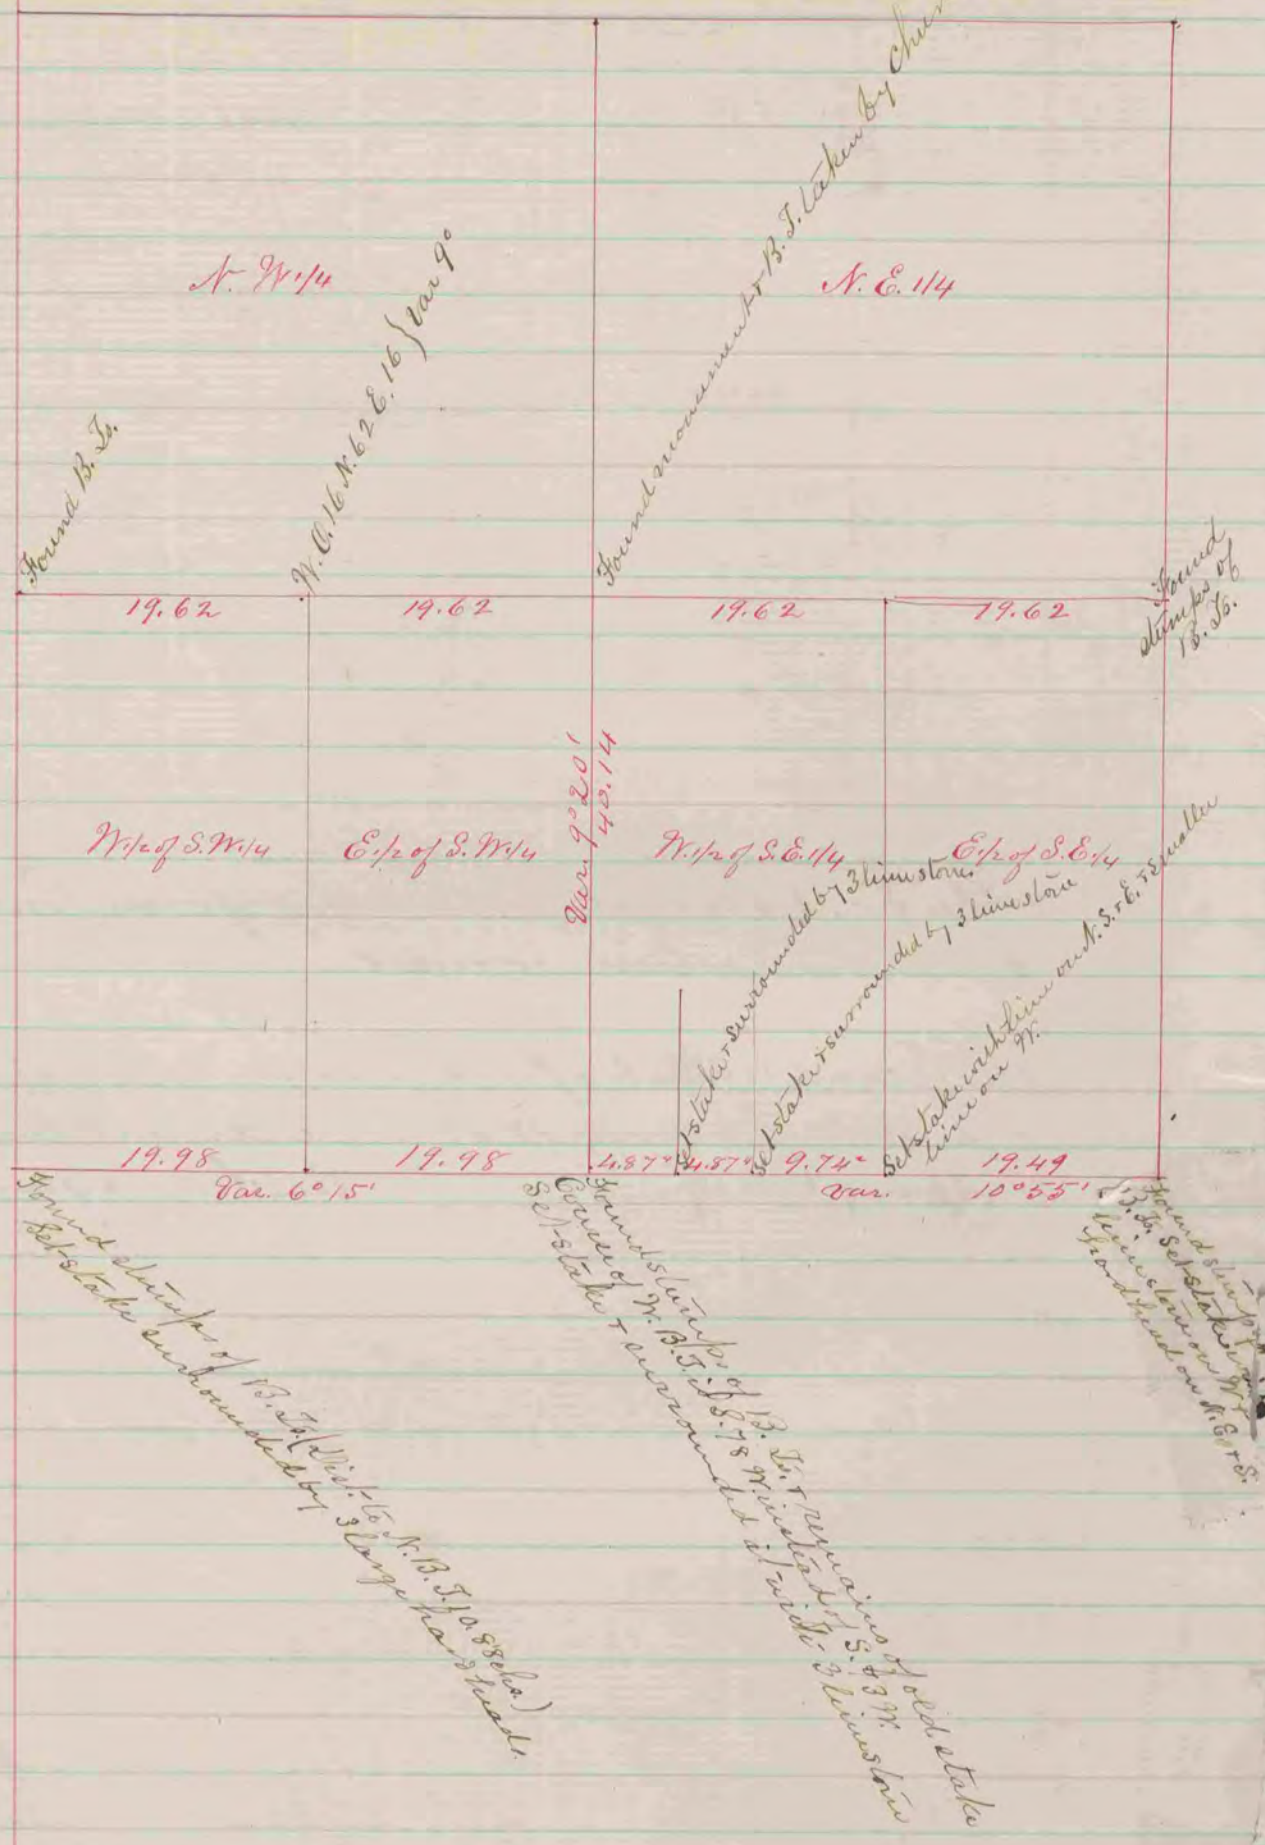 N. W. 1/4
N. E. 1/4
Found B. Ts.
W. O. 16 N. 62 E. 16 } Var 9°
Found monument & B. T. taken by
Found
stumps of
B. Ts.
19.62
19.62
19.62
19.62
Var. 9° 20'
40.14
W. 1/2 of S. W. 1/4
E. 1/2 of S. W. 1/4
W. 1/2 of S. E. 1/4
E. 1/2 of S. E. 1/4
Set stake & surrounded by 3 limestone
Set stake & surrounded by 3 limestone
Set stake with lime on N. S. & E. & smaller
lime on W.
19.98
19.98
4.87²
4.87²
9.74²
19.49
Var. 6° 15'
Var. 10° 55'
Found stumps of B. Ts. (Dist. to N. B. T. is 0.88 chs.)
Set stake surrounded by 3 large hardheads.
Found stumps of B. Ts. & remains of old stake
Course of W. B. T. is S. 78 W. instead of S. 73 W.
Set stake & surrounded it with 3 limestone
Found stumps
B. Ts. Set stake
limestone on W. &
hardhead on N. E. & S.